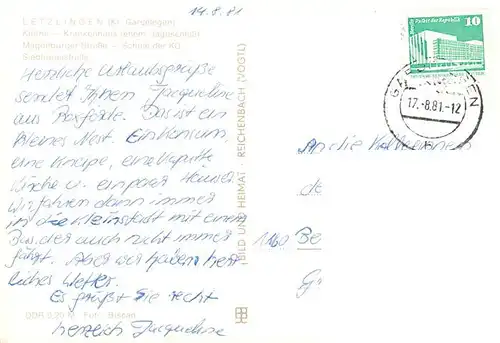 14.8.81
LETZLINGEN (Kr. Gardelegen)
Kirche - Krankenhaus (ehem. Jagdschloß)
Magdeburger Straße - Schule der KG
Siedlungsstraße
Herzliche Urlaubsgrüße
sendet Ihnen Jacqueline
aus Roxförde. Das ist ein
kleines Nest. Ein Konsum,
eine Kneipe, eine kaputte
Kirche u. ein paar Häuser.
Wir fahren dann immer
in die Kleinstadt mit einem
Bus, der auch nicht immer
fährt. Aber wir haben herr
liches Wetter.
Es grüßt Sie recht
herzlich Jacqueline
DDR 0,20 M
BILD UND HEIMAT · REICHENBACH (VOGTL)
Palast der Republik
10
DDR
17.-8.81-12
An die Kolleginnen
de
1160 Be